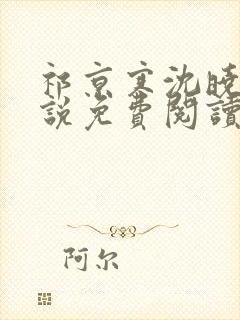 祁京寒沈晚
說免費閱讀
阿尔